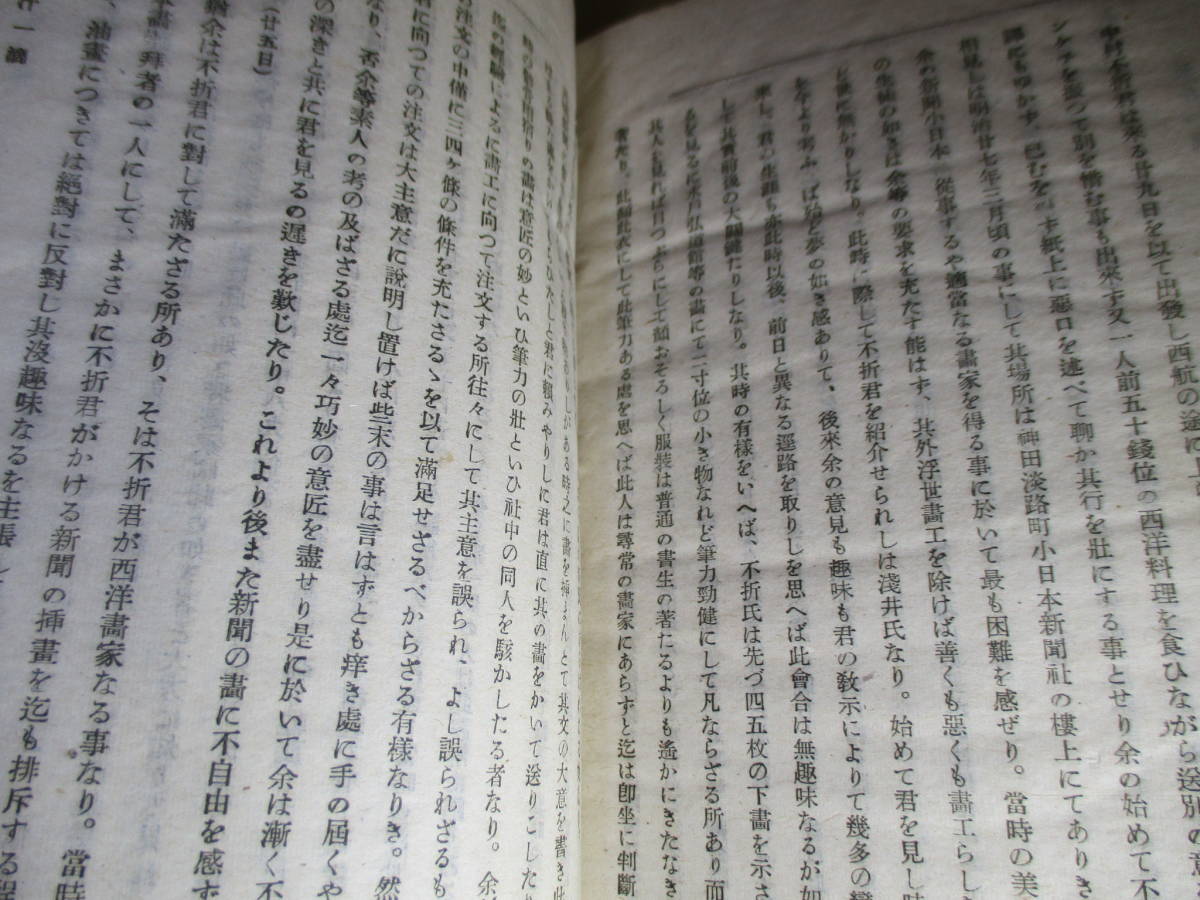 中村不折君は来る廿九日を以て出發し西航の途に
シケチを盛つて別を惜む事も出來ず又一人前五十錢位の西洋料理を食ひながら送別の意
譯にもゆかず、已むを得ず紙上に惡口を述べて聊か其行を壯にする事とせり余の始めて不
相見しは明治廿七年三月頃の事にして其場所は神田淡路町小日本新聞社の樓上にてありき
余の新聞小日本に從事するや適當なる畫家を得る事に於いて最も困難を感ぜり。當時の美
の生徒の如きは余等の要求を充たす能はず、其外浮世畫工を除けば善くも惡くも畫工らしき
に世に無かりしなり。此時に際して不折君を紹介せられしは淺井氏なり。始めて君を見し時
ば殆ど夢の如き感ありて、後來余の意見も趣味も君の敎示によりて幾多の變
來し、君の生涯も亦此時以後、前日と異なる逕路を取りしを思へば此會合は無趣味なるが如
して其實前後の大關鍵たりしなり。其時の有様をいへば、不折氏は先づ四五枚の下畫を示さ
るを見るに水戸弘道館等の畫にて二寸位の小き物なれど筆力勁健にして凡ならざる所あり而
其人を見れば目つぶらにして顔おそろしく服裝は普通の書生の著たるよりも遙かにきたなき
著たり。此顔此衣にして此筆力ある處を思へば此人は尋常の畫家にあらずと迄は卽坐に判斷
しがある時之に畫を挿まんとて其文の大意を書き此
君に賴みやりしに君は直に其の畫をかいて送りこした
の畫は意匠の妙といひ筆力の壯といひ社中の同人を駭かしたる者なり。余
の經驗によるに畫工に向つて注文する所往々にして其主意を誤られ、よし誤られざるも
の注文の中僅に三四ヶ條の條件を充たさるゝを以て滿足せざるべからざる有様なりき。然
君に向つての注文は大主意だに說明し置けば些末の事は言はずとも痒き處に手の屆くや
なり、否余等素人の考の及ばざる處迄一々巧妙の意匠を盡せり是に於いて余は漸く不
の深きと共に君を見るの遲きを歎じたり。これより後また新聞の畫に不自由を感ず
（廿五日）
余は不折君に對して滿たざる所あり、そは不折君が西洋畫家なる事なり。當時
拜者の一人にして、まさかに不折君がかける新聞の挿畫を迄も排斥する程
油畫につきては絕對に反對し其沒趣味なるを主張し
一滴